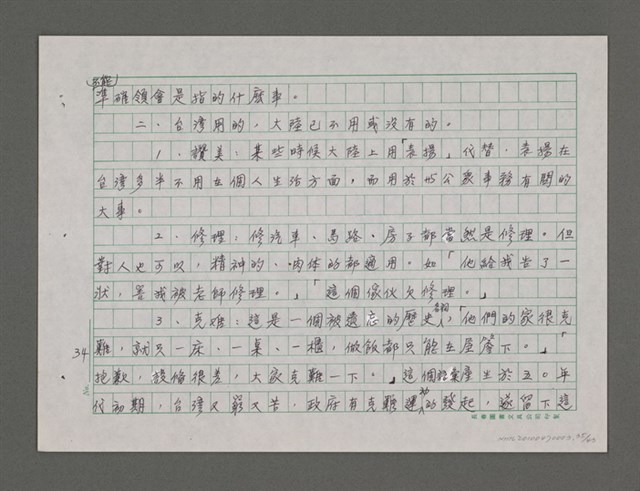 不能
準確領會是指的什麼事。
二、台湾用的，大陸已不用或没有的。
1、讚美：某些時候大陸上用「表揚」代替，表揚在
台湾多半不用在個人生活方面，而用於与公衆事務有關的
大事。
2、修理：修汽車、馬路、房子都當然是修理。但
對人也可以，精神的、肉体的都適用。如「他給我告了一
状，害我被老師修理。」「這個傢伙欠修理。」
3、克难：這是一個被遺忘的歷史詞，「他們的家很克
難，就只一床、一桌、一櫃，做飯都只能在屋簷下。」「
抱歉，設備很差，大家克難一下。」這個詞彙產生於五〇年
34
代初期，台湾又窮又苦，政府有克難運动的發起，遂留下這